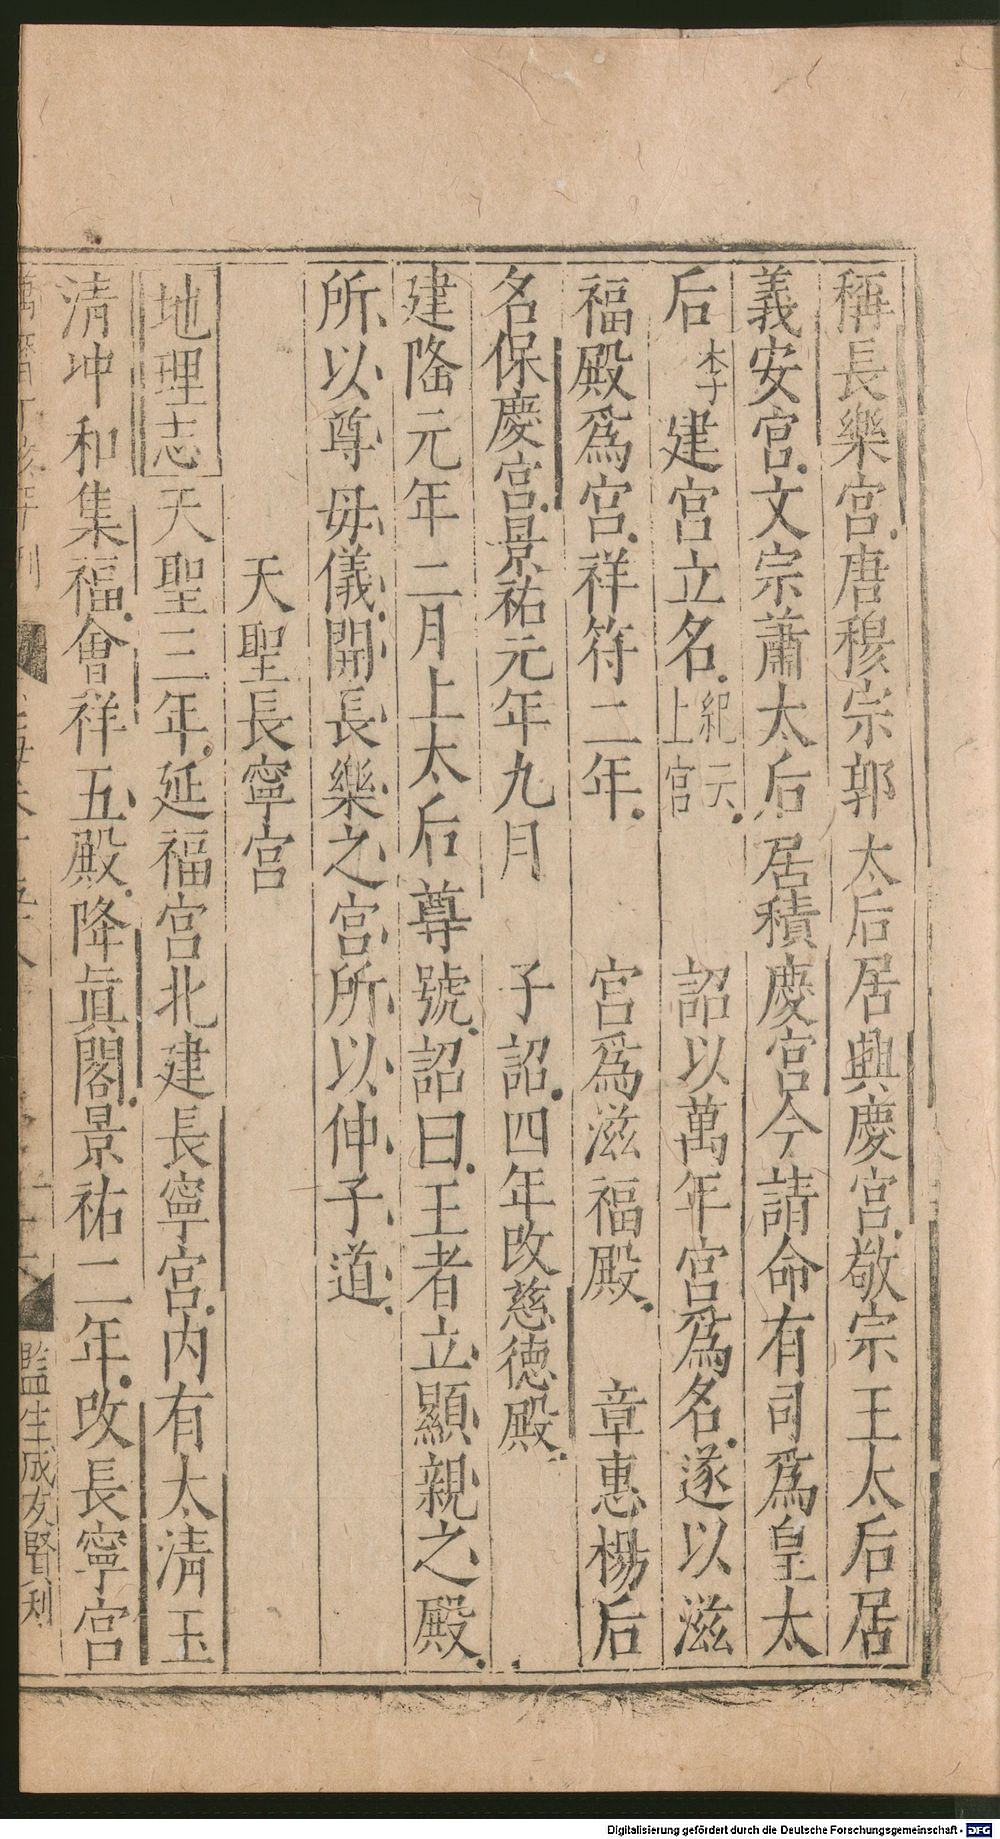 稱長樂宮唐穆宗郭太后居興慶宮敬宗王太后居
義安宮文宗蕭太后居積慶宮今請命有司爲皇太
后李建宮立名紀元上官詔以萬年宮爲名遂以滋
福殿爲宮祥符二年宮爲滋福殿章惠楊后
名保慶宮景祐元年九月子詔四年改慈德殿
建隆元年二月上太后尊號詔曰王者立顯親之殿
所以尊母儀開長樂之宮所以伸子道
天聖長寧宮
地理志天聖三年延福宮北建長寧宮內有太清玉
清冲和集福會祥五殿降眞閣景祐二年改長寧宮
監生成友賢刊
Digitalisierung gefördert durch die Deutsche Forschungsgemeinschaft - DFG